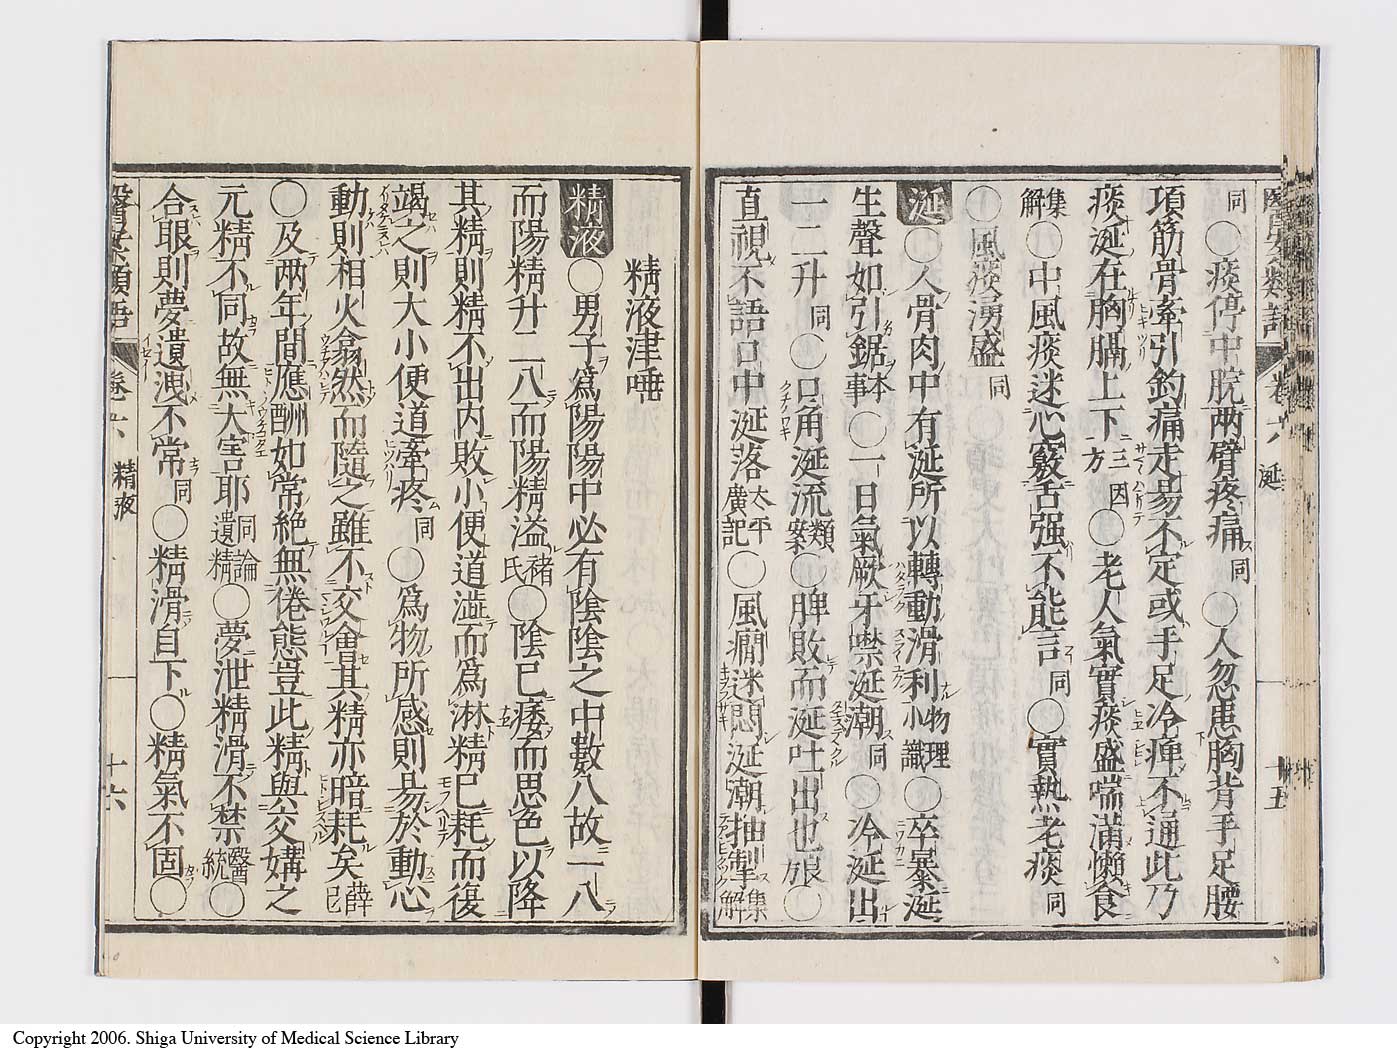 醫案類語 卷六 涎 十五
同〇痰停中脘兩臂疼痛同〇人忽患胸背手足腰
項筋骨牽引釣痛走易不定或手足冷痺不通此乃
痰涎在胸膈上下三因方〇老人氣實痰盛喘滿懶食
集解〇中風痰迷心竅舌强不能言同〇實熱老痰同
〇風痰湧盛同
涎〇人骨肉中有涎所以轉動滑利物理小識〇卒暴涎
生聲如引鋸本事〇一日氣厥牙噤涎潮同〇冷涎出
一二升同〇口角涎流類案〇脾敗而涎吐出也〇
直視不語口中涎落太平廣記〇風癇迷悶涎潮抽掣集解
精液津唾
精液〇男子爲陽陽中必有陰陰之中數八故一八
而陽精升二八而陽精溢褚氏〇陰已痿而思色以降
其精則精不出内敗小便道澁而爲淋精已耗而復
竭之則大小便道牽疼同〇爲物所感則易於動心
動則相火翕然而隨之雖不交會其精亦暗耗矣薛已
〇及兩年間應酬如常絶無倦態豈此精與交媾之
元精不同故無大害耶同論遺精〇夢泄精滑不禁醫統〇
合眼則夢遺洩不常同〇精滑自下〇精氣不固〇
醫案類語 卷六 精液 十六
Copyright 2006. Shiga University of Medical Science Library